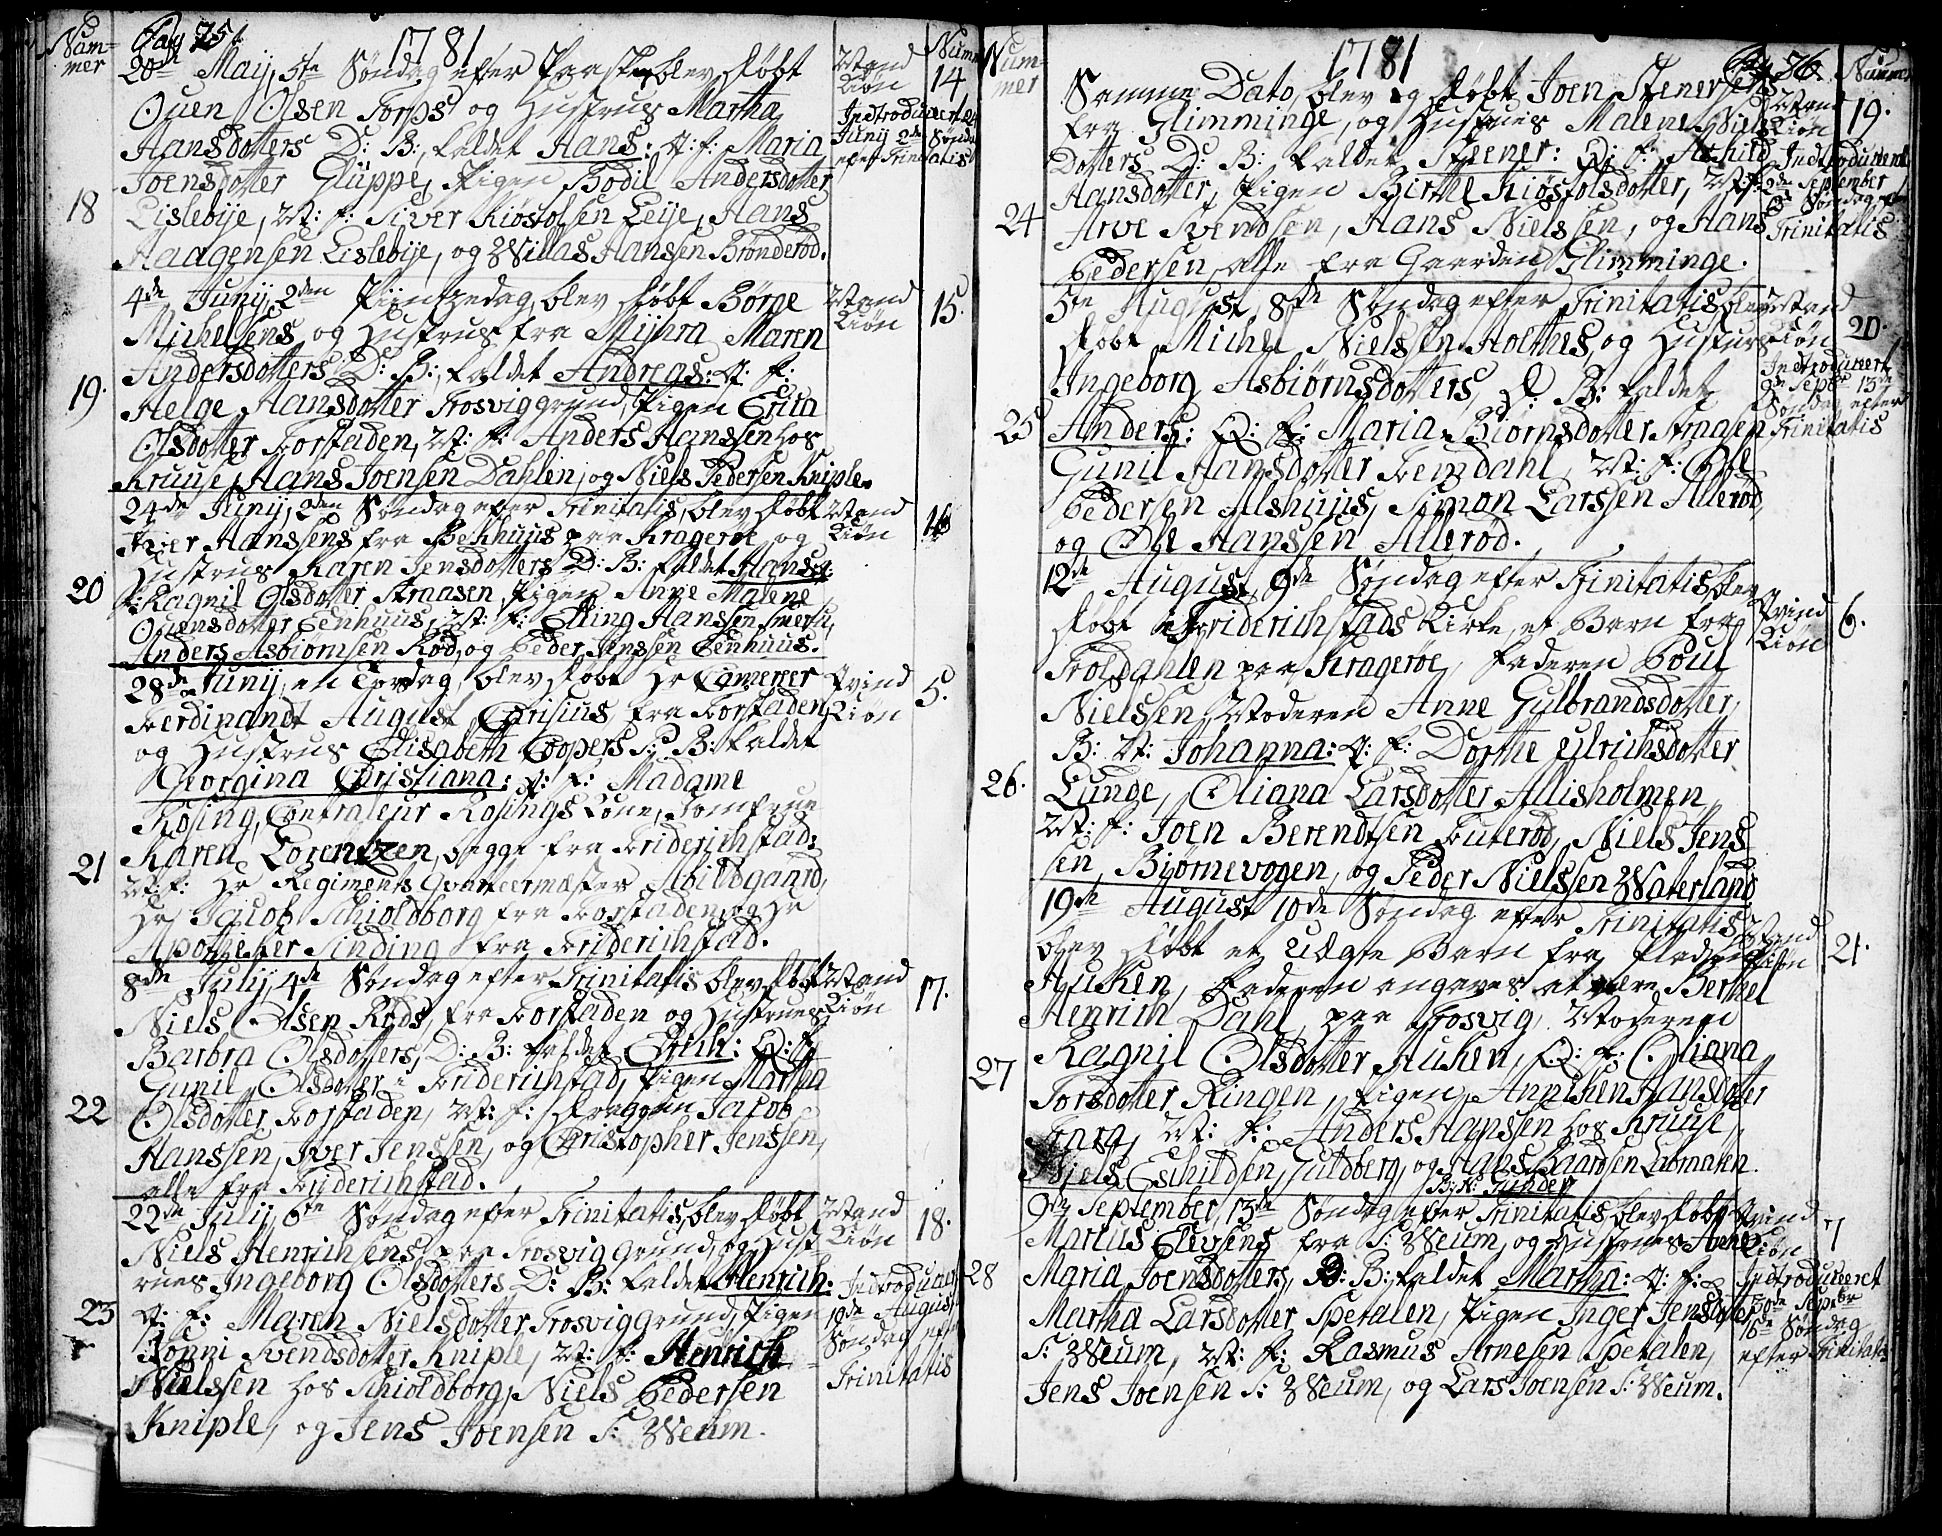 Num-
mer
Pag 35.
1781
Numm
20de Maij, 5te Søndag efter Paaske blev døbt
Ouen Olsen Torps og Hustrus Martha
Hansdotters D: B: kaldet Hans: Q: f: Maria
Joensdotter Gluppe, Pigen Bodil Andersdotter
Lislebije, M: f: Siver Kiøstolsen Leije, Hans
Haagensen Lislebije, og Willas Hansen Brønderød.
18
Mand
Kiøn
14
Introduceret
Junij 2de Sønda
efter Trinitatis
4de Junij, 2den Pijntzedag, blev døbt Børge
Michelsens og Hustrus fra Mijhra Maren
Andersdotters D: B: kaldet Andreas: Q: f:
Helge Hansdotter Trosviggrund, Pigen Erica
Olsdotter Forstaden, M: f: Anders Hanssen hos
Kruuse, Hans Joensen Dahlen, og Niels Pedersen Kniple.
19.
Mand
Kiøn
15.
24de Junij, 2den Søndag efter Trinitatis, blev døbt
Iver Hanssens fra Bekhuus paa Kragerøe og
Hustrus Karen Jensdotters D: B: kaldet Hans: Q:
f: Ragnil Olsdotter Straasen, Pigen Anne Malene
Ouensdotter Eenhuus, M: f: Elling Hanssen
Anders Asbiørnsen Rød, og Peder Jenssen Eenhuus.
20
Mand
Kiøn
16
28de Junij, en Torsdag, blev døbt Hr Camerer
Ferdinandt August Crisius fra Forstaden
og Hustrus Elisabeth Coopers D: B: kaldet
Georgina Christiana: Q: f: Madame
Rosing, Contraleur Rosings Kone, Jomfrue
Karen Lorentzen, begge fra Friderichstad:
M: f: Hr Regiments Qvarteermæster Abildgaard,
Hr Jacob Schioldborg fra Forstaden, og Hr
Apotheker Sinding fra Friderichstad.
21
Qvind
Kiøn
5.
8de Julij, 4de Søndag efter Trinitatis blev døbt
Niels Olsen Røds, fra Forstaden og Hustrues
Barbra Olsdotters, D: B: kaldet Erich: Q: f:
Gunil Olsdotter i Friderichstad, Pigen Martha
Olsdotter Forstaden, M: f: Jacob
Hanssen, Iver Jenssen, og Christopher Jenssen,
alle fra Friderichstad.
22
Mand
Kiøn
17.
22de Julij, 6te Søndag efter Trinitatis, blev døbt
Niels Henrichsens fra Trosviggrund, og Hust-
rues Ingeborg Olsdotters D: B: kaldet Henrich:
Q: f: Maren Nielsdotter Trosviggrund, Pigen
Rønni Svendsdotter Kniple, M: f: Henrich
Nielssen hos Schioldborg, Niels Pedersen
Kniple, og Jens Joensen S: Weum.
23
Mand
Kiøn
18.
Introducer
19de August
Søndag efter
Trinitatis
Num-
mer
1781
Pag 36.
Nummer
Samme Dato, blev og døbt Joen Steners
fra Glimminge, og Hustrues Malene Niels
Dotters D: B: kaldet Steener: Q: f: Ashild
Hansdotter, Pigen Birthe Kiøstolsdotter, M: f:
Arve Svendsen, Hans Nielssen, og Hans
Pedersen, alle fra Gaarden Glimminge.
24
Mand
Kiøn
19.
Introduceret
2de September
Søndag efter
Trinitatis
5te August, 8de Søndag efter Trinitatis, blev
døbt Michel Nielssen Holthes, og Hustrues
Ingeborg Asbiørnsdotters, D: B: kaldet
Anders: Q: f: Maria Biørnsdotter Straasen
Gunil Hansdotter Femdahl, M: f: Ole
Pedersen Alshuus, Simon Larssen Allerød,
og Ole Hanssen Allerød.
25
Mand
Kiøn
20.
Introduceret
9de Septbr 13de
Søndag efter
Trinitatis
12de August, 9de Søndag efter Trinitatis, blev
døbt i Friderichstads Kirke, et Barn fra
Troldahlen paa Kragerøe, Faderen Poul
Nielsen, Moderen Anne Gulbrandsdotter,
B: N: Johanna: Q: f: Dorthe Ulrichsdotter
Lunde, Oliana Larsdotter Allisholmen,
M: f: Joen Berendtsen Buterød, Niels Jens
sen, Biørnevogen, og Peder Nielssen Waterland
26.
Qvind
Kiøn
6.
19de August 10de Søndag efter Trinitatis
blev døbt et Uægte Barn fra Pladsen
Huchen, Faderen angaves at være Berthel
Henrich Dahl, paa Trosvig, Moderen
Ragnil Olsdotter Huchen, Q: f: Oliana
Torsdotter Ringen, Pigen Annichen Hansdotter
Tara, M: f: Anders Hanssen hos Kruuse,
Niels Eschildsen, Guldberg, og Hans Baardsen Labmaken.
B: N: Gunder
27
Mand
Kiøn
21.
9de September, 13de Søndag efter Trinitatis blev døbt
Marcus Elevsens fra S: Weum, og Hustrues Anne
Maria Joensdotters, D: B: kaldet Martha: Q: f:
Martha Larsdotter Spetalen, Pigen Inger Jensdotter
S: Weum, M: f: Rasmus Arnesen Spetalen,
Jens Joensen S: Weum, og Lars Joensen S: Weum.
28
Qvind
Kiøn
7
Introduceret
30te Septebr
16de Søndag
efter Trinitatis